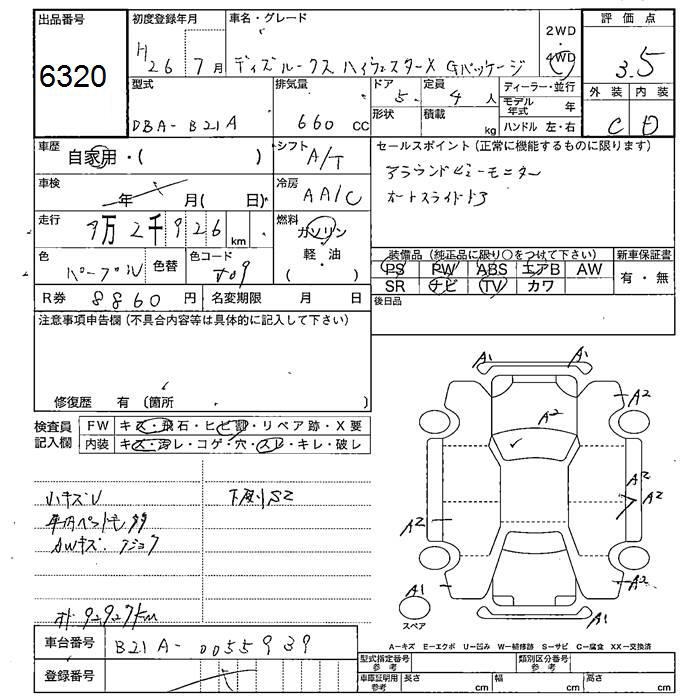 出品番号
6320
初度登録年月
H26 7月
車名・グレード
デイズルークス ハイウェスターX Gパッケージ
2WD
・
4WD
評価点
3.5
型式
DBA-B21A
排気量
660 cc
ドア 5
形状
定員 4 人
積載 kg
ディーラー・並行
モデル年式 年
ハンドル 左・右
外装 内装
C D
車歴
自家用・( )
シフト
A/T
セールスポイント (正常に機能するものに限ります)
アラウンドビューモニター
オートスライドドア
車検
年 月( 日)
冷房
AA/C
走行
9万2千926 km
燃料
ガソリン
軽・油
( )
色
パープル
色替
色コード
装備品 (純正品に限り○をつけて下さい)
新車保証書
PS PW ABS エアB AW
SR ナビ TV カワ
有・無
R券 8860 円
名変期限 月 日
後日品
注意事項申告欄 (不具合内容等は具体的に記入して下さい)
修復歴 有 (箇所 )
検査員
記入欄
FW キズ・飛石・ヒビ割・リペア跡・X要
内装 キズ・汚レ・コゲ・穴・スレ・キレ・破レ
小キズU
下廻りS2
AWキズ
A1 A1
A2
A2
A2
A2
A2
A2
A1
A1
スペア
A-キズ E-エクボ U-凹み W-補修跡 S-サビ C-腐食 XX-交換済
車台番号
B21A-0055939
登録番号
型式指定番号
参考
類別区分番号
参考
車庫証明用
参考
長さ cm 幅 cm 高さ cm